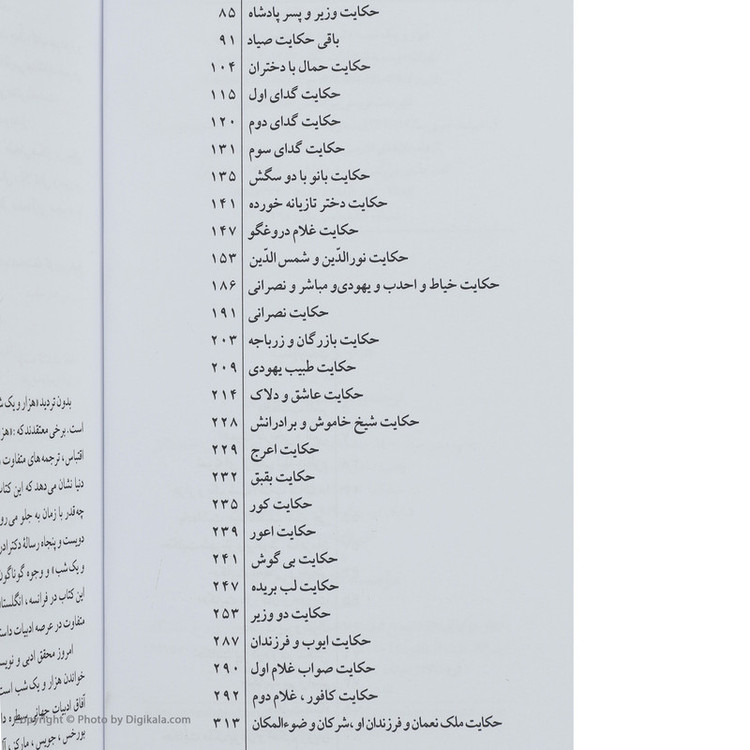 حکایت وزیر و پسر پادشاه ۸۵
باقی حکایت صیاد ۹۱
حکایت حمال با دختران ۱۰۴
حکایت گدای اول ۱۱۵
حکایت گدای دوم ۱۲۰
حکایت گدای سوم ۱۳۱
حکایت بانو با دو سگش ۱۳۵
حکایت دختر تازیانه خورده ۱۴۱
حکایت غلام دروغگو ۱۴۷
حکایت نورالدّین و شمس الدّین ۱۵۳
حکایت خیاط و احدب و یهودی‌و مباشر و نصرانی ۱۸۶
حکایت نصرانی ۱۹۱
حکایت بازرگان و زرباجه ۲۰۳
حکایت طبیب یهودی ۲۰۹
حکایت عاشق و دلاک ۲۱۴
حکایت شیخ خاموش و برادرانش ۲۲۸
حکایت اعرج ۲۲۹
حکایت بقبق ۲۳۲
حکایت کور ۲۳۵
حکایت اعور ۲۳۹
حکایت بی گوش ۲۴۱
حکایت لب بریده ۲۴۷
حکایت دو وزیر ۲۵۳
حکایت ایوب و فرزندان ۲۸۷
حکایت صواب غلام اول ۲۹۰
حکایت کافور ، غلام دوم ۲۹۲
حکایت ملک نعمان و فرزندان او ،شرکان و ضوءالمکان ۳۱۳
بدون تردید «هزار و یک
است. برخی معتقدند که :«هز
اقتباس، ترجمه های متفاوت
دنیا نشان می‌دهد که این کتا
چه‌قدر با زمان به جلو می رو
دویست و پنجاه رسالهٔ دکترا در
و یک شب» و وجوه گوناگون
این کتاب در فرانسه، انگلستا
متفاوت در عرصه ادبیات داست
امروز محقق ادبی و نویس
خواندن هزار و یک شب است
آفاق ادبیات جهانی سیطره دا
بورخس، جویس، مارکز،
Copyright © Photo by Digikala.com